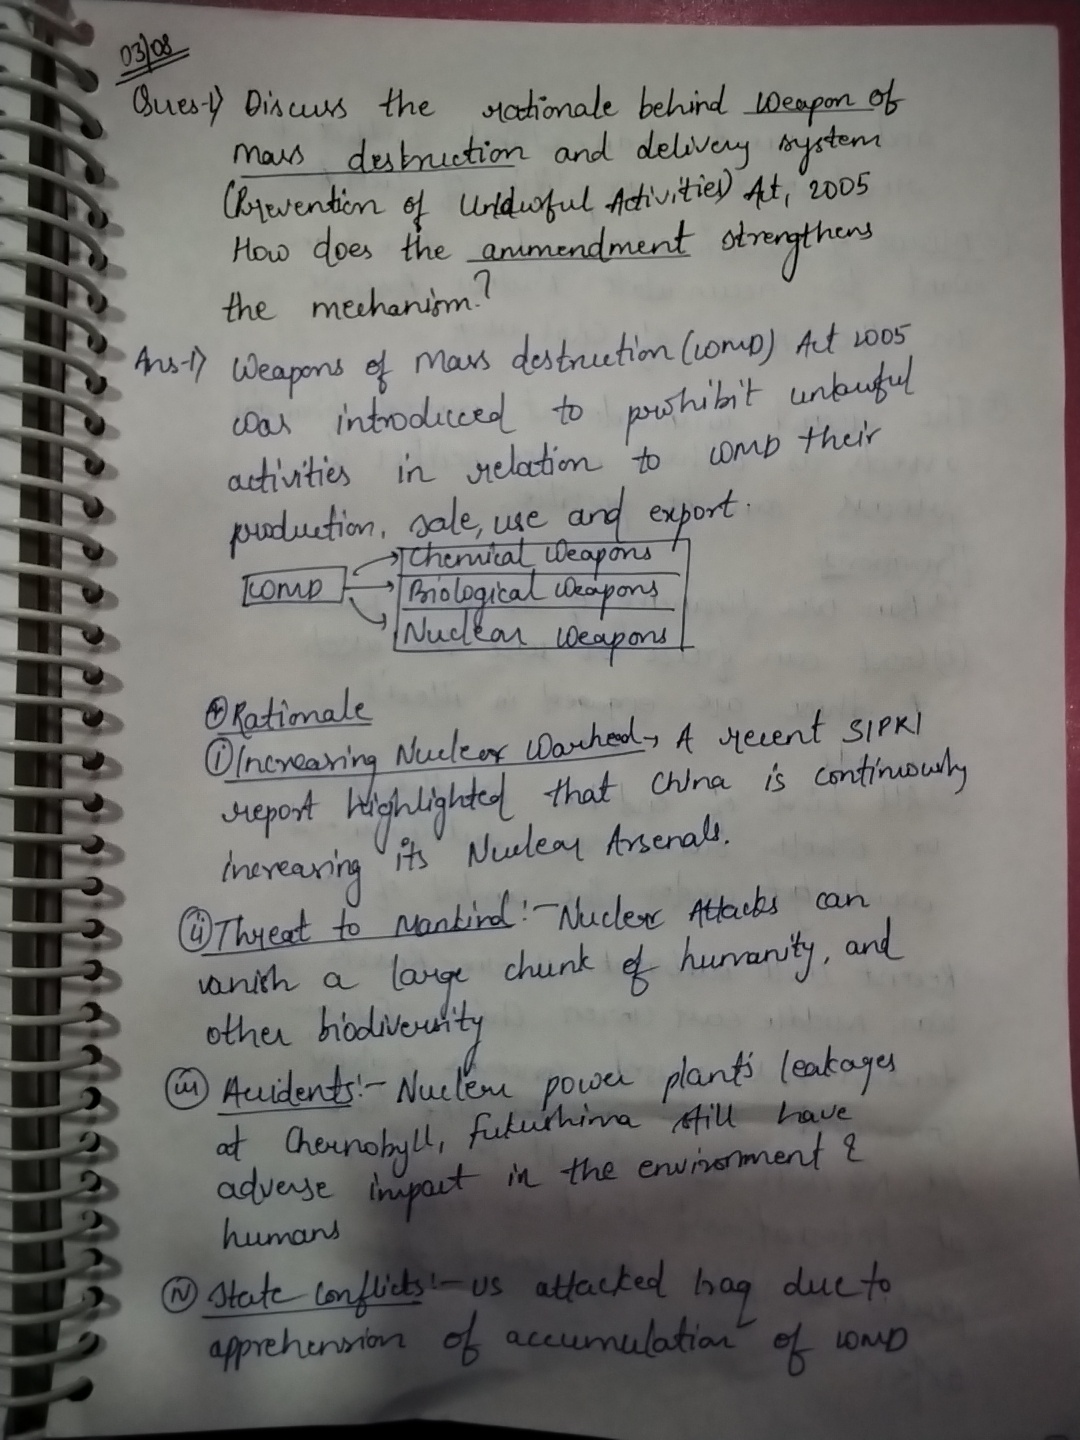 03/08
Ques-1) Discuss the rationale behind Weapon of
mass destruction and delivery system
(Prevention of Unlawful Activities) Act, 2005
How does the ammendment strengthens
the mechanism?
Ans-1) Weapons of Mass destruction (WMD) Act 2005
was introduced to prohibit unlawful
activities in relation to WMD their
production, sale, use and export.
WMD
Chemical Weapons
Biological Weapons
Nuclear Weapons
Rationale
(i) Increasing Nuclear Warhead → A recent SIPRI
report highlighted that China is continuously
increasing its Nuclear Arsenals.
(ii) Threat to Mankind :- Nuclear Attacks can
vanish a large chunk of humanity, and
other biodiversity
(iii) Accidents :- Nuclear power plant's leakages
at Chernobyll, Fukushima still have
adverse impact in the environment &
humans
(iv) State Conflicts :- US attacked Iraq due to
apprehension of accumulation of WMD